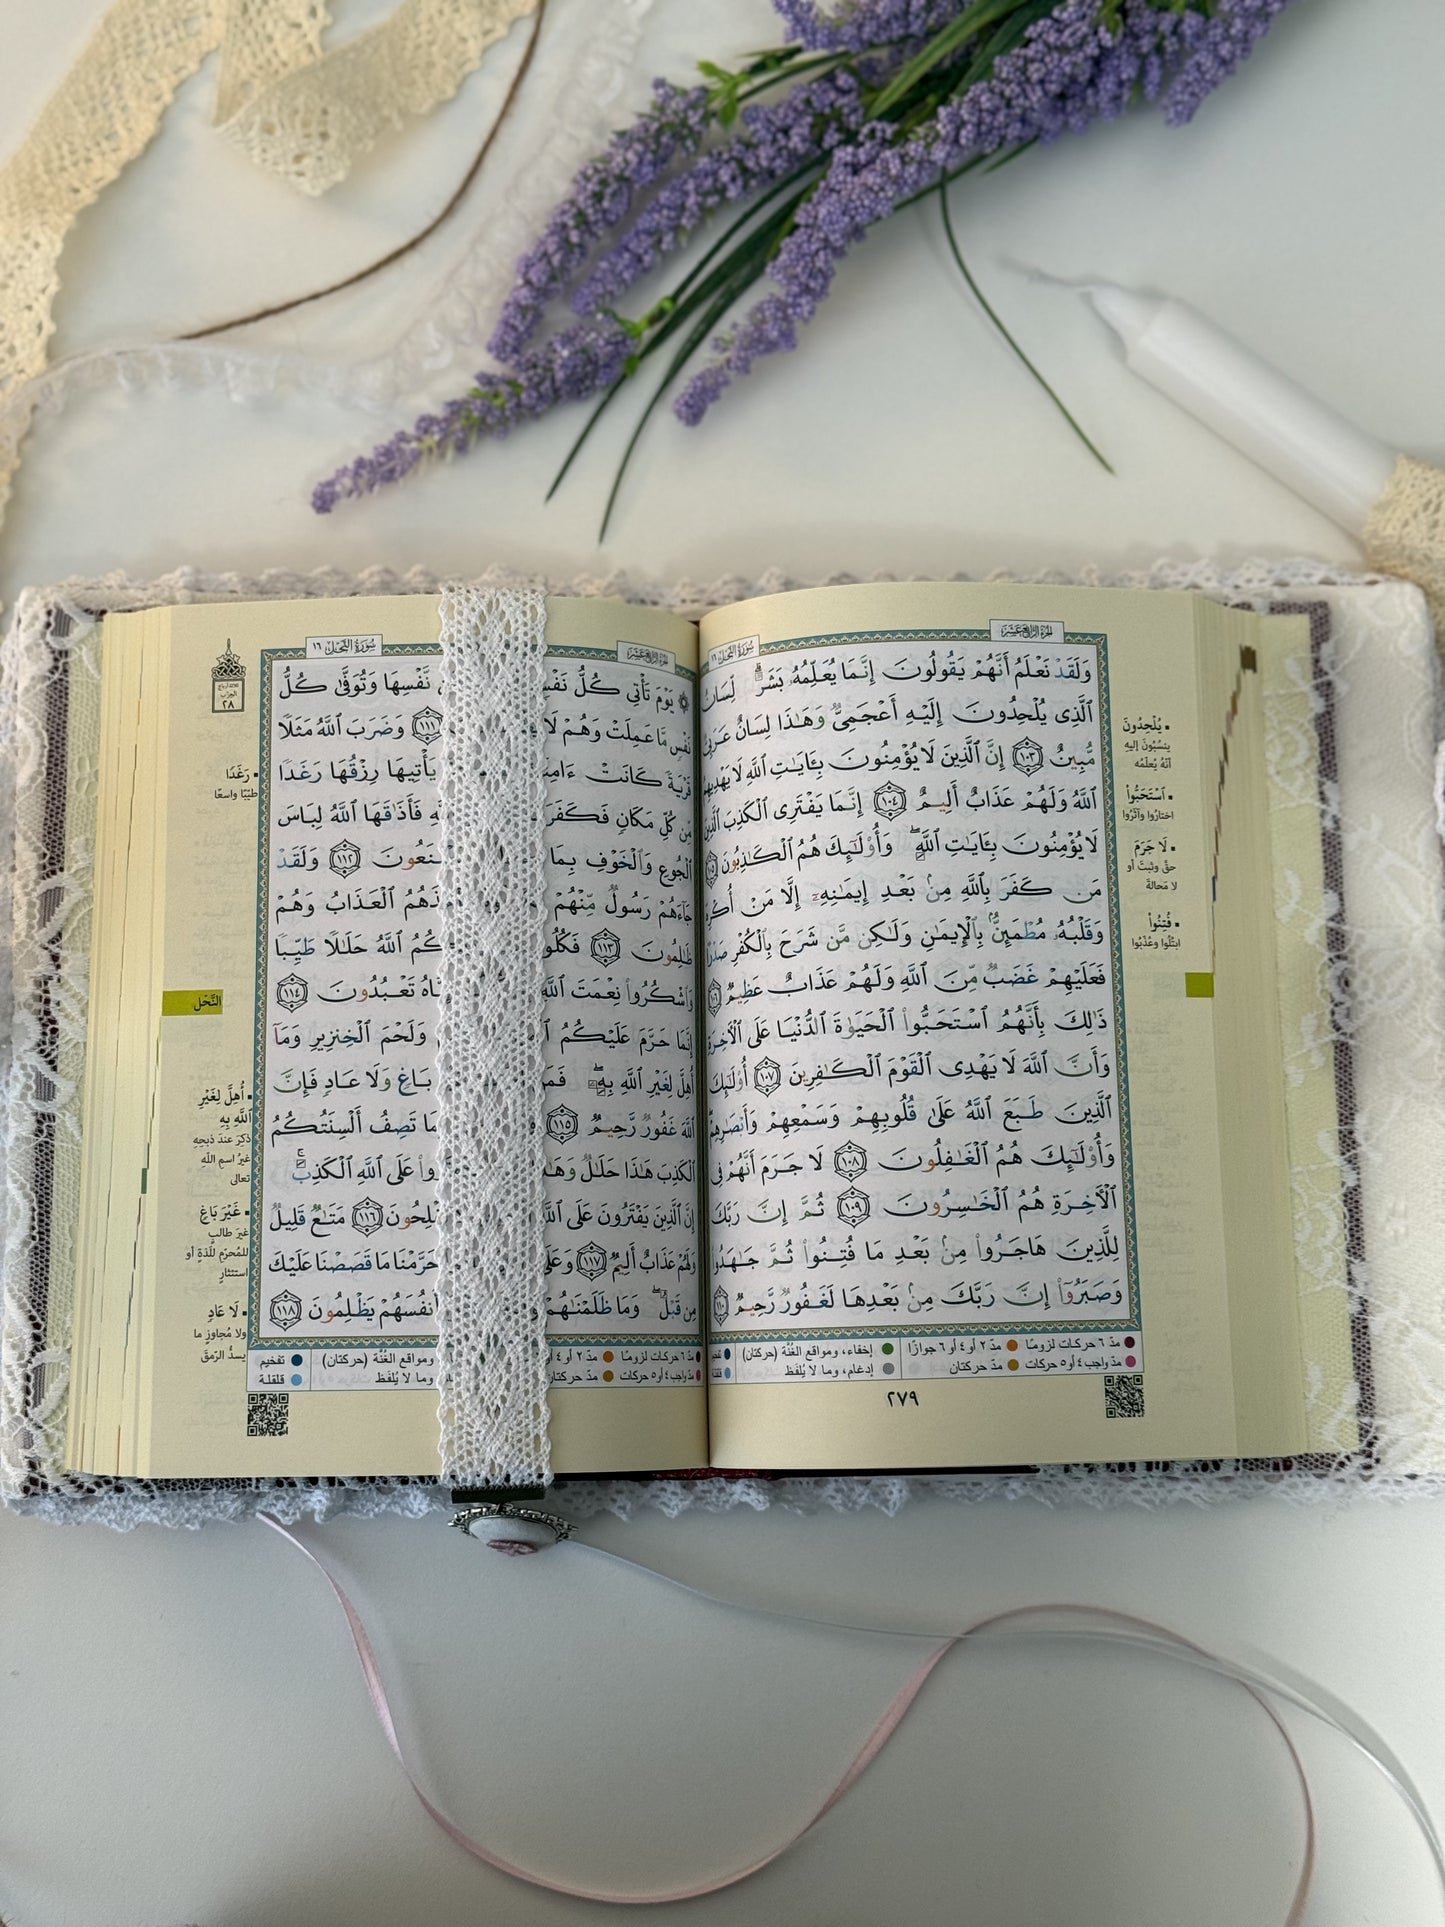 الجزء الرابع عشر
سُورَةُ النَّحْلِ ١٦
وَلَقَدْ نَعْلَمُ أَنَّهُمْ يَقُولُونَ إِنَّمَا يُعَلِّمُهُۥ بَشَرٌۗ لِّسَانُ
ٱلَّذِى يُلْحِدُونَ إِلَيْهِ أَعْجَمِىٌّ وَهَـٰذَا لِسَانٌ عَرَبِىٌّ
مُّبِينٌ ١٠٣ إِنَّ ٱلَّذِينَ لَا يُؤْمِنُونَ بِـَٔايَـٰتِ ٱللَّهِ لَا يَهْدِيهِمُ
ٱللَّهُ وَلَهُمْ عَذَابٌ أَلِيمٌ ١٠٤ إِنَّمَا يَفْتَرِى ٱلْكَذِبَ ٱلَّذِينَ
لَا يُؤْمِنُونَ بِـَٔايَـٰتِ ٱللَّهِۖ وَأُو۟لَـٰٓئِكَ هُمُ ٱلْكَـٰذِبُونَ ١٠٥
مَن كَفَرَ بِٱللَّهِ مِنۢ بَعْدِ إِيمَـٰنِهِۦٓ إِلَّا مَنْ أُكْرِهَ
وَقَلْبُهُۥ مُطْمَئِنٌّۢ بِٱلْإِيمَـٰنِ وَلَـٰكِن مَّن شَرَحَ بِٱلْكُفْرِ صَدْرًا
فَعَلَيْهِمْ غَضَبٌ مِّنَ ٱللَّهِ وَلَهُمْ عَذَابٌ عَظِيمٌ ١٠٦
ذَٰلِكَ بِأَنَّهُمُ ٱسْتَحَبُّوا۟ ٱلْحَيَوٰةَ ٱلدُّنْيَا عَلَى ٱلْـَٔاخِرَةِ
وَأَنَّ ٱللَّهَ لَا يَهْدِى ٱلْقَوْمَ ٱلْكَـٰفِرِينَ ١٠٧ أُو۟لَـٰٓئِكَ
ٱلَّذِينَ طَبَعَ ٱللَّهُ عَلَىٰ قُلُوبِهِمْ وَسَمْعِهِمْ وَأَبْصَـٰرِهِمْۖ
وَأُو۟لَـٰٓئِكَ هُمُ ٱلْغَـٰفِلُونَ ١٠٨ لَا جَرَمَ أَنَّهُمْ فِى
ٱلْـَٔاخِرَةِ هُمُ ٱلْخَـٰسِرُونَ ١٠٩ ثُمَّ إِنَّ رَبَّكَ
لِلَّذِينَ هَاجَرُوا۟ مِنۢ بَعْدِ مَا فُتِنُوا۟ ثُمَّ جَـٰهَدُوا۟
وَصَبَرُوٓا۟ إِنَّ رَبَّكَ مِنۢ بَعْدِهَا لَغَفُورٌ رَّحِيمٌ ١١٠
▪ يُلْحِدُونَ
ينسُبُونَ إليه
أنّه يُعلّمُه
▪ ٱسْتَحَبُّوا۟
اختارُوا وآثَرُوا
▪ لَا جَرَمَ
حقّ وثبتَ أو
لا مَحالةَ
▪ فُتِنُوا۟
ابتُلُوا وعُذّبُوا
مدّ ٦ حركات لزومًا مدّ ٢ أو ٤ أو ٦ جوازًا إخفاء، ومواقع الغُنَّة (حركتان)
مدّ واجب ٤ أو ٥ حركات مدّ حركتان إدغام، وما لا يُلفَظ
٢٧٩
الجزء الرابع عشر
سُورَةُ النَّحْلِ ١٦
يَوْمَ تَأْتِى كُلُّ نَفْسٍ نَّفْسِهَا وَتُوَفَّىٰ كُلُّ
نَفْسٍ مَّا عَمِلَتْ وَهُمْ لَا ١١١ وَضَرَبَ ٱللَّهُ مَثَلًا
قَرْيَةً كَانَتْ يَأْتِيهَا رِزْقُهَا رَغَدًا
مِّن كُلِّ مَكَانٍ فَكَفَرَ فَأَذَٰقَهَا ٱللَّهُ لِبَاسَ
ٱلْجُوعِ وَٱلْخَوْفِ بِمَا ١١٢ وَلَقَدْ
جَآءَهُمْ رَسُولٌ مِّنْهُمْ ٱلْعَذَابُ وَهُمْ
ظَـٰلِمُونَ ١١٣ ٱللَّهُ حَلَـٰلًا طَيِّبًا
وَٱشْكُرُوا۟ نِعْمَتَ ٱللَّهِ تَعْبُدُونَ ١١٤
إِنَّمَا حَرَّمَ عَلَيْكُمُ وَلَحْمَ ٱلْخِنزِيرِ وَمَآ
أُهِلَّ لِغَيْرِ ٱللَّهِ بِهِۦۖ بَاغٍ وَلَا عَادٍ فَإِنَّ
ٱللَّهَ غَفُورٌ رَّحِيمٌ ١١٥ تَصِفُ أَلْسِنَتُكُمُ
ٱلْكَذِبَ هَـٰذَا حَلَـٰلٌ عَلَى ٱللَّهِ ٱلْكَذِبَۚ
إِنَّ ٱلَّذِينَ يَفْتَرُونَ عَلَى ٱللَّهِ ١١٦ مَتَـٰعٌ قَلِيلٌ
وَلَهُمْ عَذَابٌ أَلِيمٌ ١١٧ وَعَلَى حَرَّمْنَا مَا قَصَصْنَا عَلَيْكَ
مِن قَبْلُۖ وَمَا ظَلَمْنَـٰهُمْ أَنفُسَهُمْ يَظْلِمُونَ ١١٨
ثلاثة أرباع
الحزب
٢٨
▪ رَغَدًا
طيّبًا واسعًا
النَّحْل
▪ أُهِلَّ لِغَيْرِ
ٱللَّهِ بِهِ
ذُكِرَ عندَ ذبحِهِ
غيرُ اسمِ اللهِ
تعالى
▪ غَيْرَ بَاغٍ
غيرَ طالبٍ
للمُحرّمِ للذّةٍ أو
استئثارٍ
▪ لَا عَادٍ
ولا مُجاوِزٍ ما
يسدُّ الرّمقَ
مدّ ٦ حركات لزومًا مدّ ٢ أو ٤ ومواقع الغُنَّة (حركتان) تفخيم
مدّ واجب ٤ أو ٥ حركات مدّ حركتان وما لا يُلفَظ قلقلة